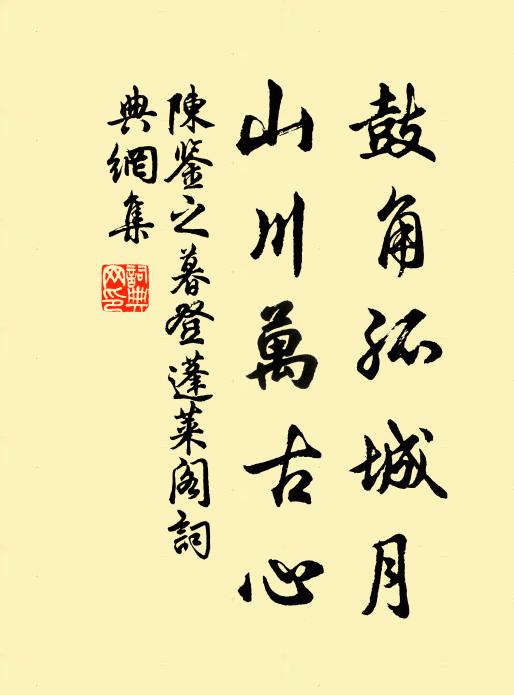 鼓角孤城月
山川萬古心
陳鑒之暮登蓬萊阁詞
典網集
詞典
网印